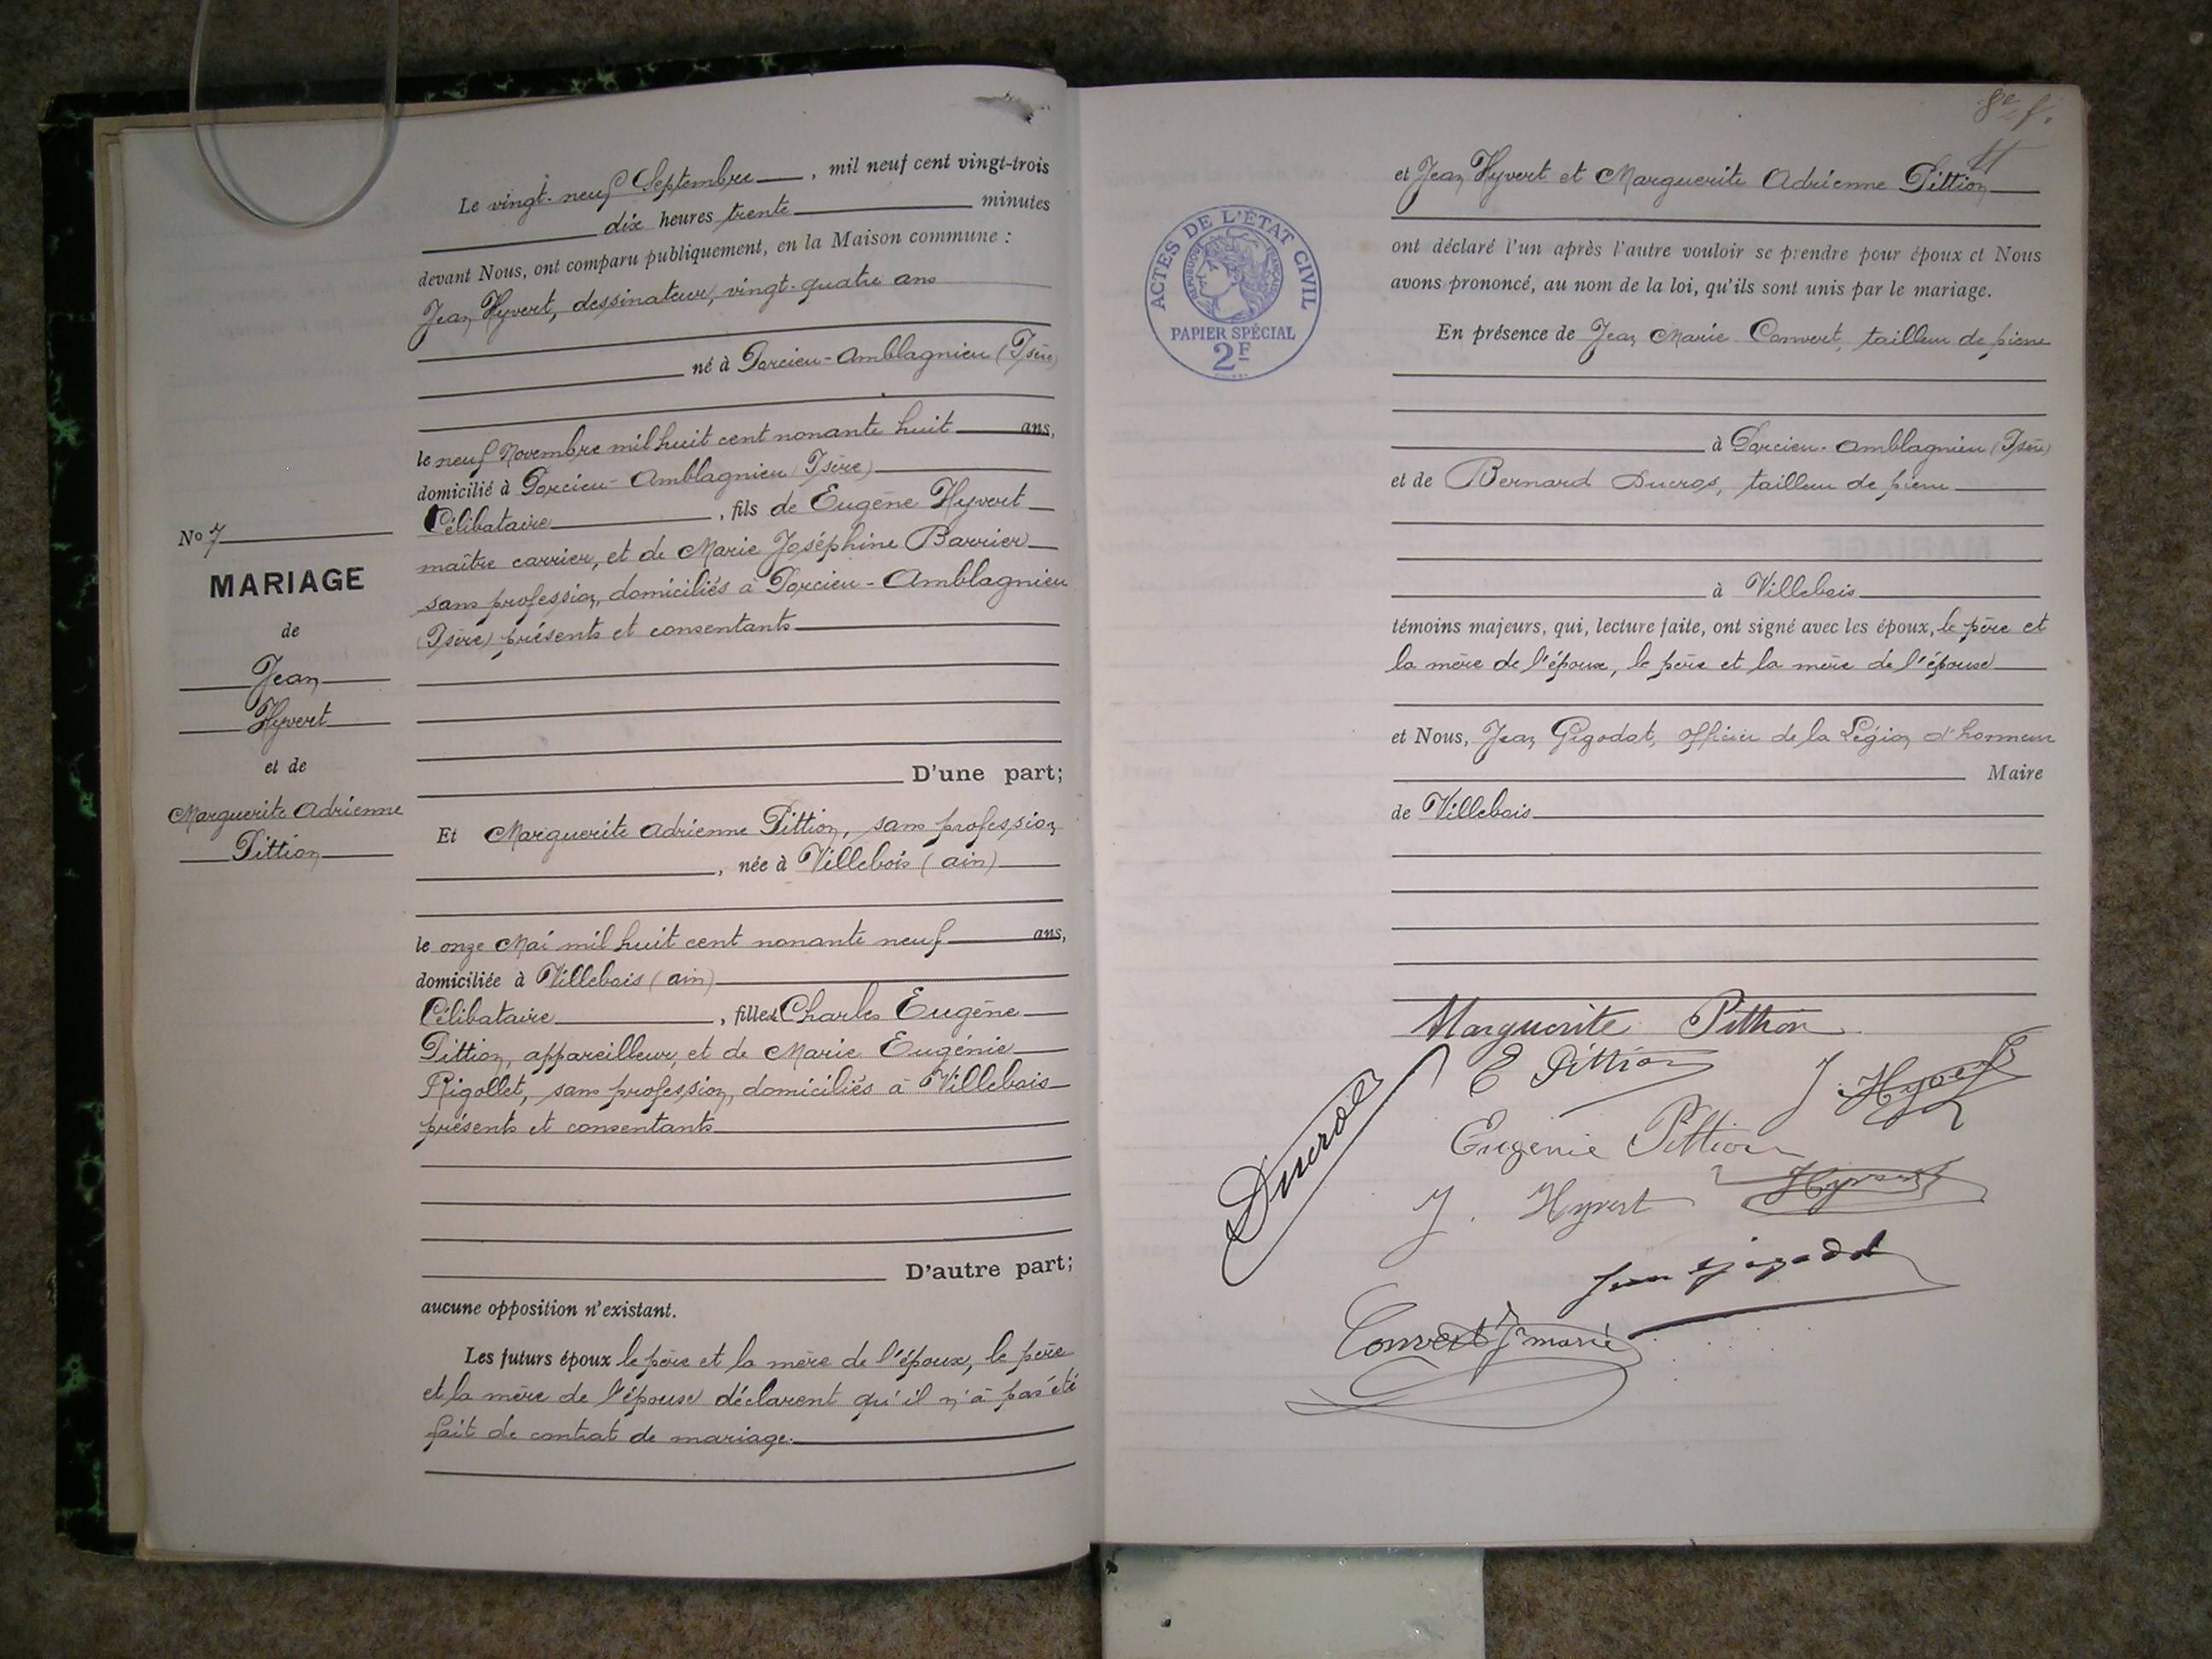 Le vingt-neuf Septembre, mil neuf cent vingt-trois
dix heures trente minutes
devant Nous, ont comparu publiquement, en la Maison commune :
Jean Hyvert, dessinateur, vingt-quatre ans
né à Porcieu-Amblagnieu (Isère)
le neuf Novembre mil huit cent nonante huit ans,
domicilié à Porcieu-Amblagnieu (Isère)
Célibataire, fils de Eugène Hyvert
maître carrier, et de Marie Joséphine Barrier
sans profession, domiciliés à Porcieu-Amblagnieu
(Isère) présents et consentants
D'une part;
No 7
MARIAGE
de
Jean
Hyvert
et de
Marguerite Adrienne
Pittion
Et Marguerite Adrienne Pittion, sans profession
, née à Villebois (ain)
le onze Mai mil huit cent nonante neuf ans,
domiciliée à Villebois (ain)
Célibataire, fille de Charles Eugène
Pittion, appareilleur, et de Marie Eugénie
Rigollet, sans profession, domiciliés à Villebois
présents et consentants
D'autre part;
aucune opposition n'existant.
Les futurs époux le père et la mère de l'époux, le père
et la mère de l'épouse déclarent qu'il n'a pas été
fait de contrat de mariage.
8e f.
et Jean Hyvert et Marguerite Adrienne Pittion
ACTES DE L'ÉTAT CIVIL
RÉPUBLIQUE FRANÇAISE
PAPIER SPÉCIAL
2F
ont déclaré l'un après l'autre vouloir se prendre pour époux et Nous
avons prononcé, au nom de la loi, qu'ils sont unis par le mariage.
En présence de Jean Marie Convert, tailleur de pierre
à Porcieu-Amblagnieu (Isère)
et de Bernard Ducros, tailleur de pierre
à Villebois
témoins majeurs, qui, lecture faite, ont signé avec les époux, le père et
la mère de l'époux, le père et la mère de l'épouse
et Nous, Jean Gigodot, officier de la Légion d'honneur
Maire
de Villebois
Marguerite Pittion
E Pittion
J. Hyvert
Ducros
Eugénie Pittion
J. Hyvert
Hyvert
Jean Gigodot
Convert J marie